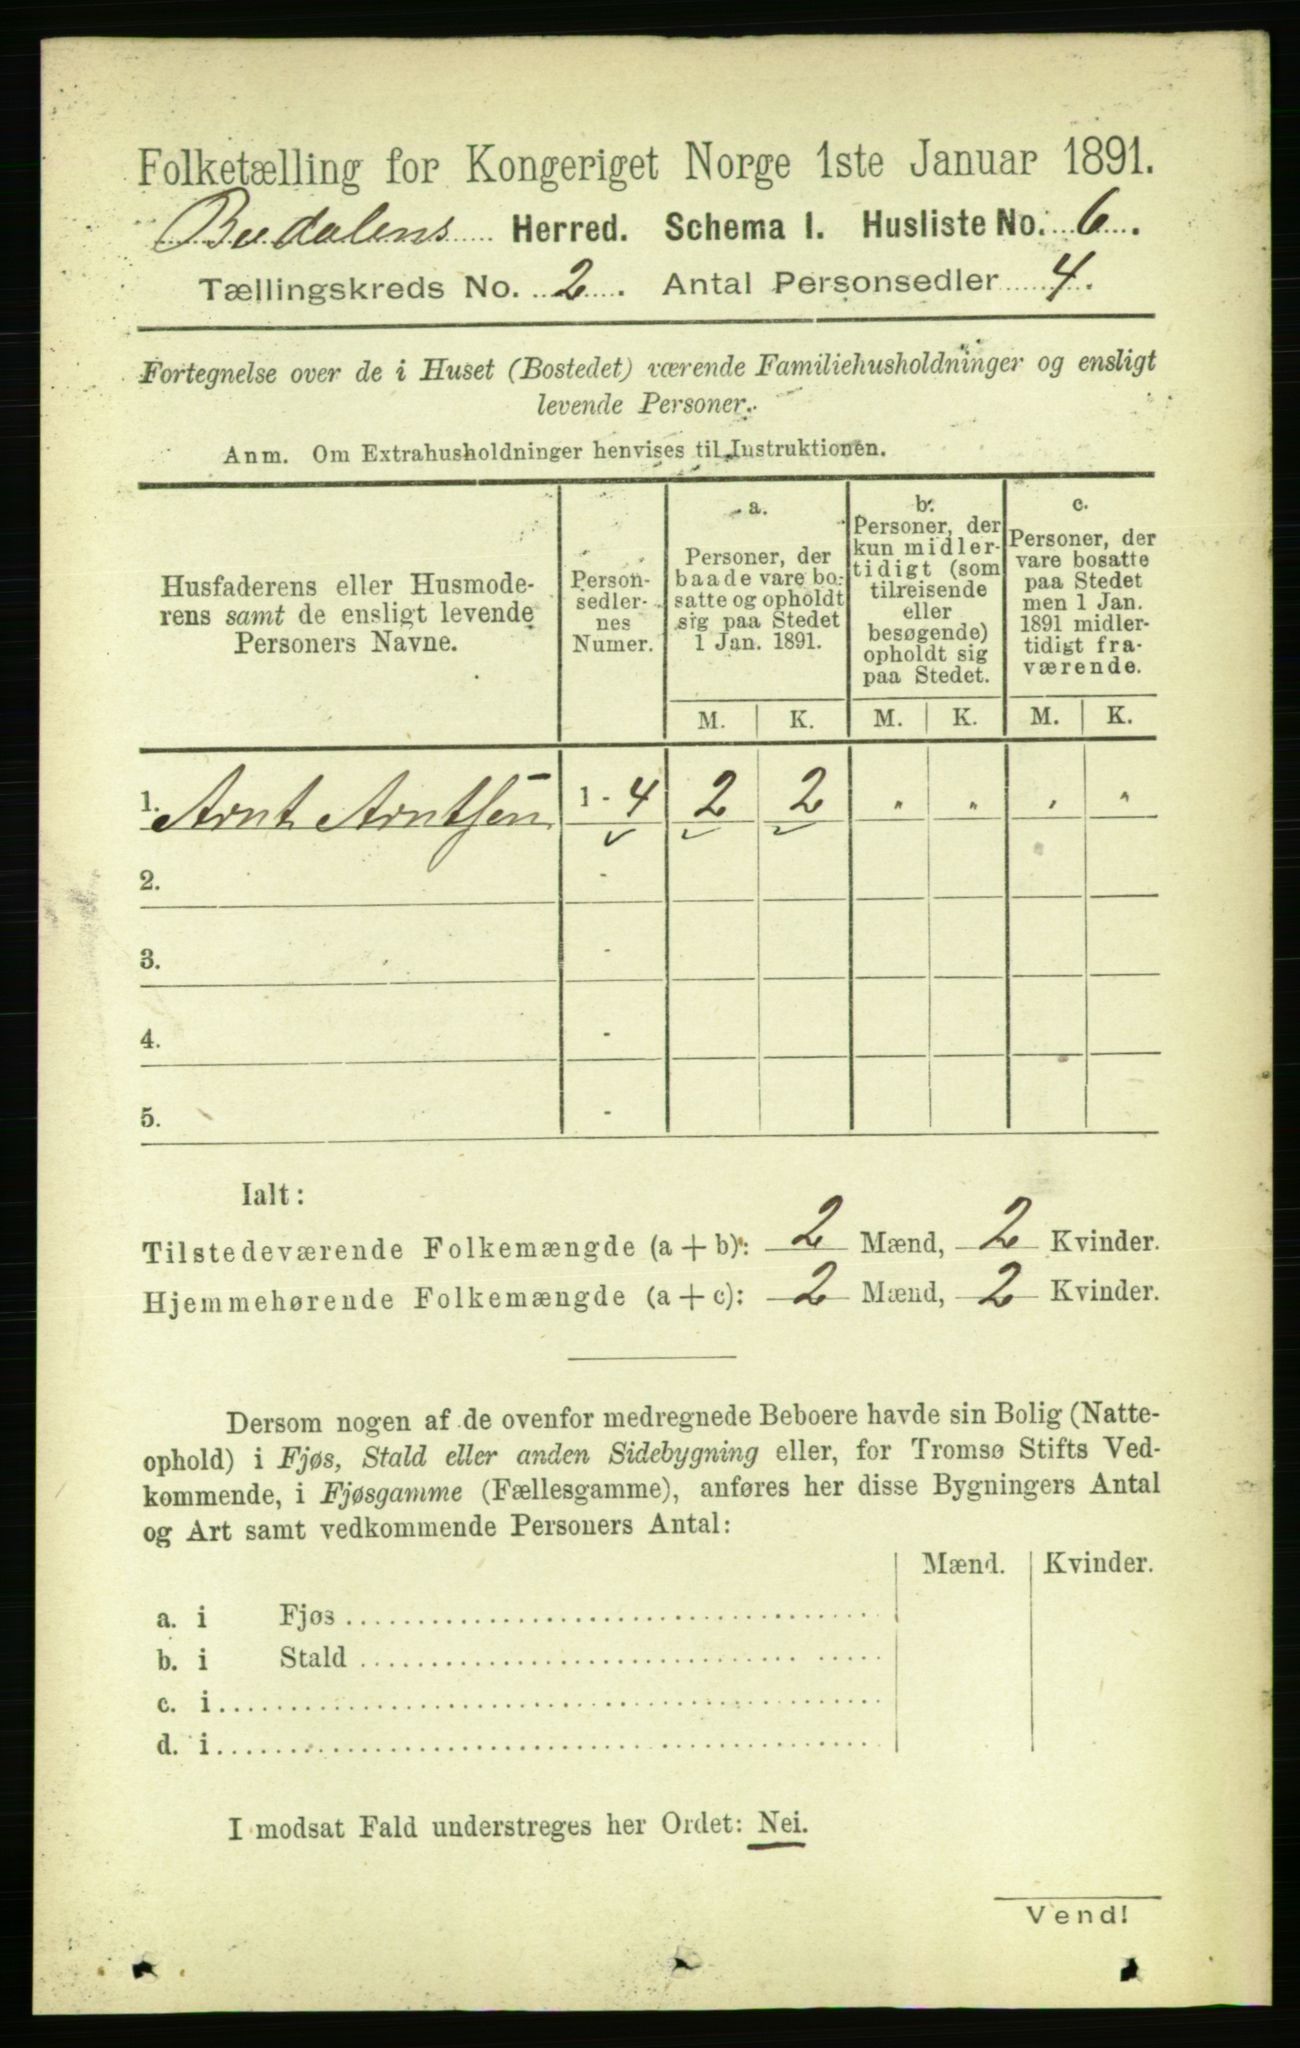 Folketælling for Kongeriget Norge 1ste Januar 1891.
Budalens Herred. Schema 1. Husliste No. 6.
Tællingskreds No. 2. Antal Personsedler 4.
Fortegnelse over de i Huset (Bostedet) værende Familiehusholdninger og ensligt
levende Personer.
Anm. Om Extrahusholdninger henvises til Instruktionen.
Husfaderens eller Husmode-
rens samt de ensligt levende
Personers Navne.
Person-
sedler-
nes
Numer.
a.
Personer, der
baade vare bo-
satte og opholdt
sig paa Stedet
1 Jan. 1891.
b.
Personer, der
kun midler-
tidigt (som
tilreisende
eller
besøgende)
opholdt sig
paa Stedet.
c.
Personer, der
vare bosatte
paa Stedet
men 1 Jan.
1891 midler-
tidigt fra-
værende.
M. K. M. K. M. K.
1. Arnt Arntsen 1 - 4 2 2 " " " "
2. -
3. -
4. -
5. -
Ialt:
Tilstedeværende Folkemængde (a + b): 2 Mænd, 2 Kvinder.
Hjemmehørende Folkemængde (a + c): 2 Mænd, 2 Kvinder.
Dersom nogen af de ovenfor medregnede Beboere havde sin Bolig (Natte-
ophold) i Fjøs, Stald eller anden Sidebygning eller, for Tromsø Stifts Ved-
kommende, i Fjøsgamme (Fællesgamme), anføres her disse Bygningers Antal
og Art samt vedkommende Personers Antal:
Mænd. Kvinder.
a. i Fjøs
b. i Stald
c. i
d. i
I modsat Fald understreges her Ordet: Nei.
Vend!